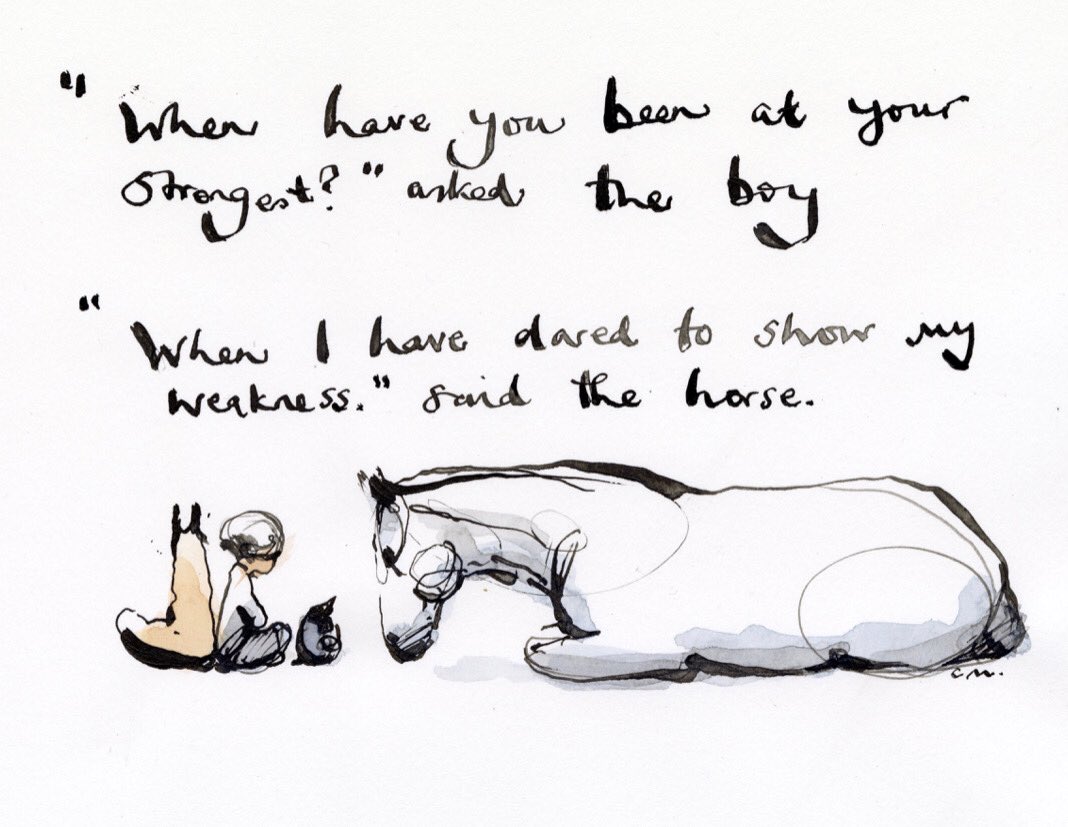 "When have you been at your
strongest?" asked the boy
"When I have dared to show my
weakness." said the horse.
C.M.